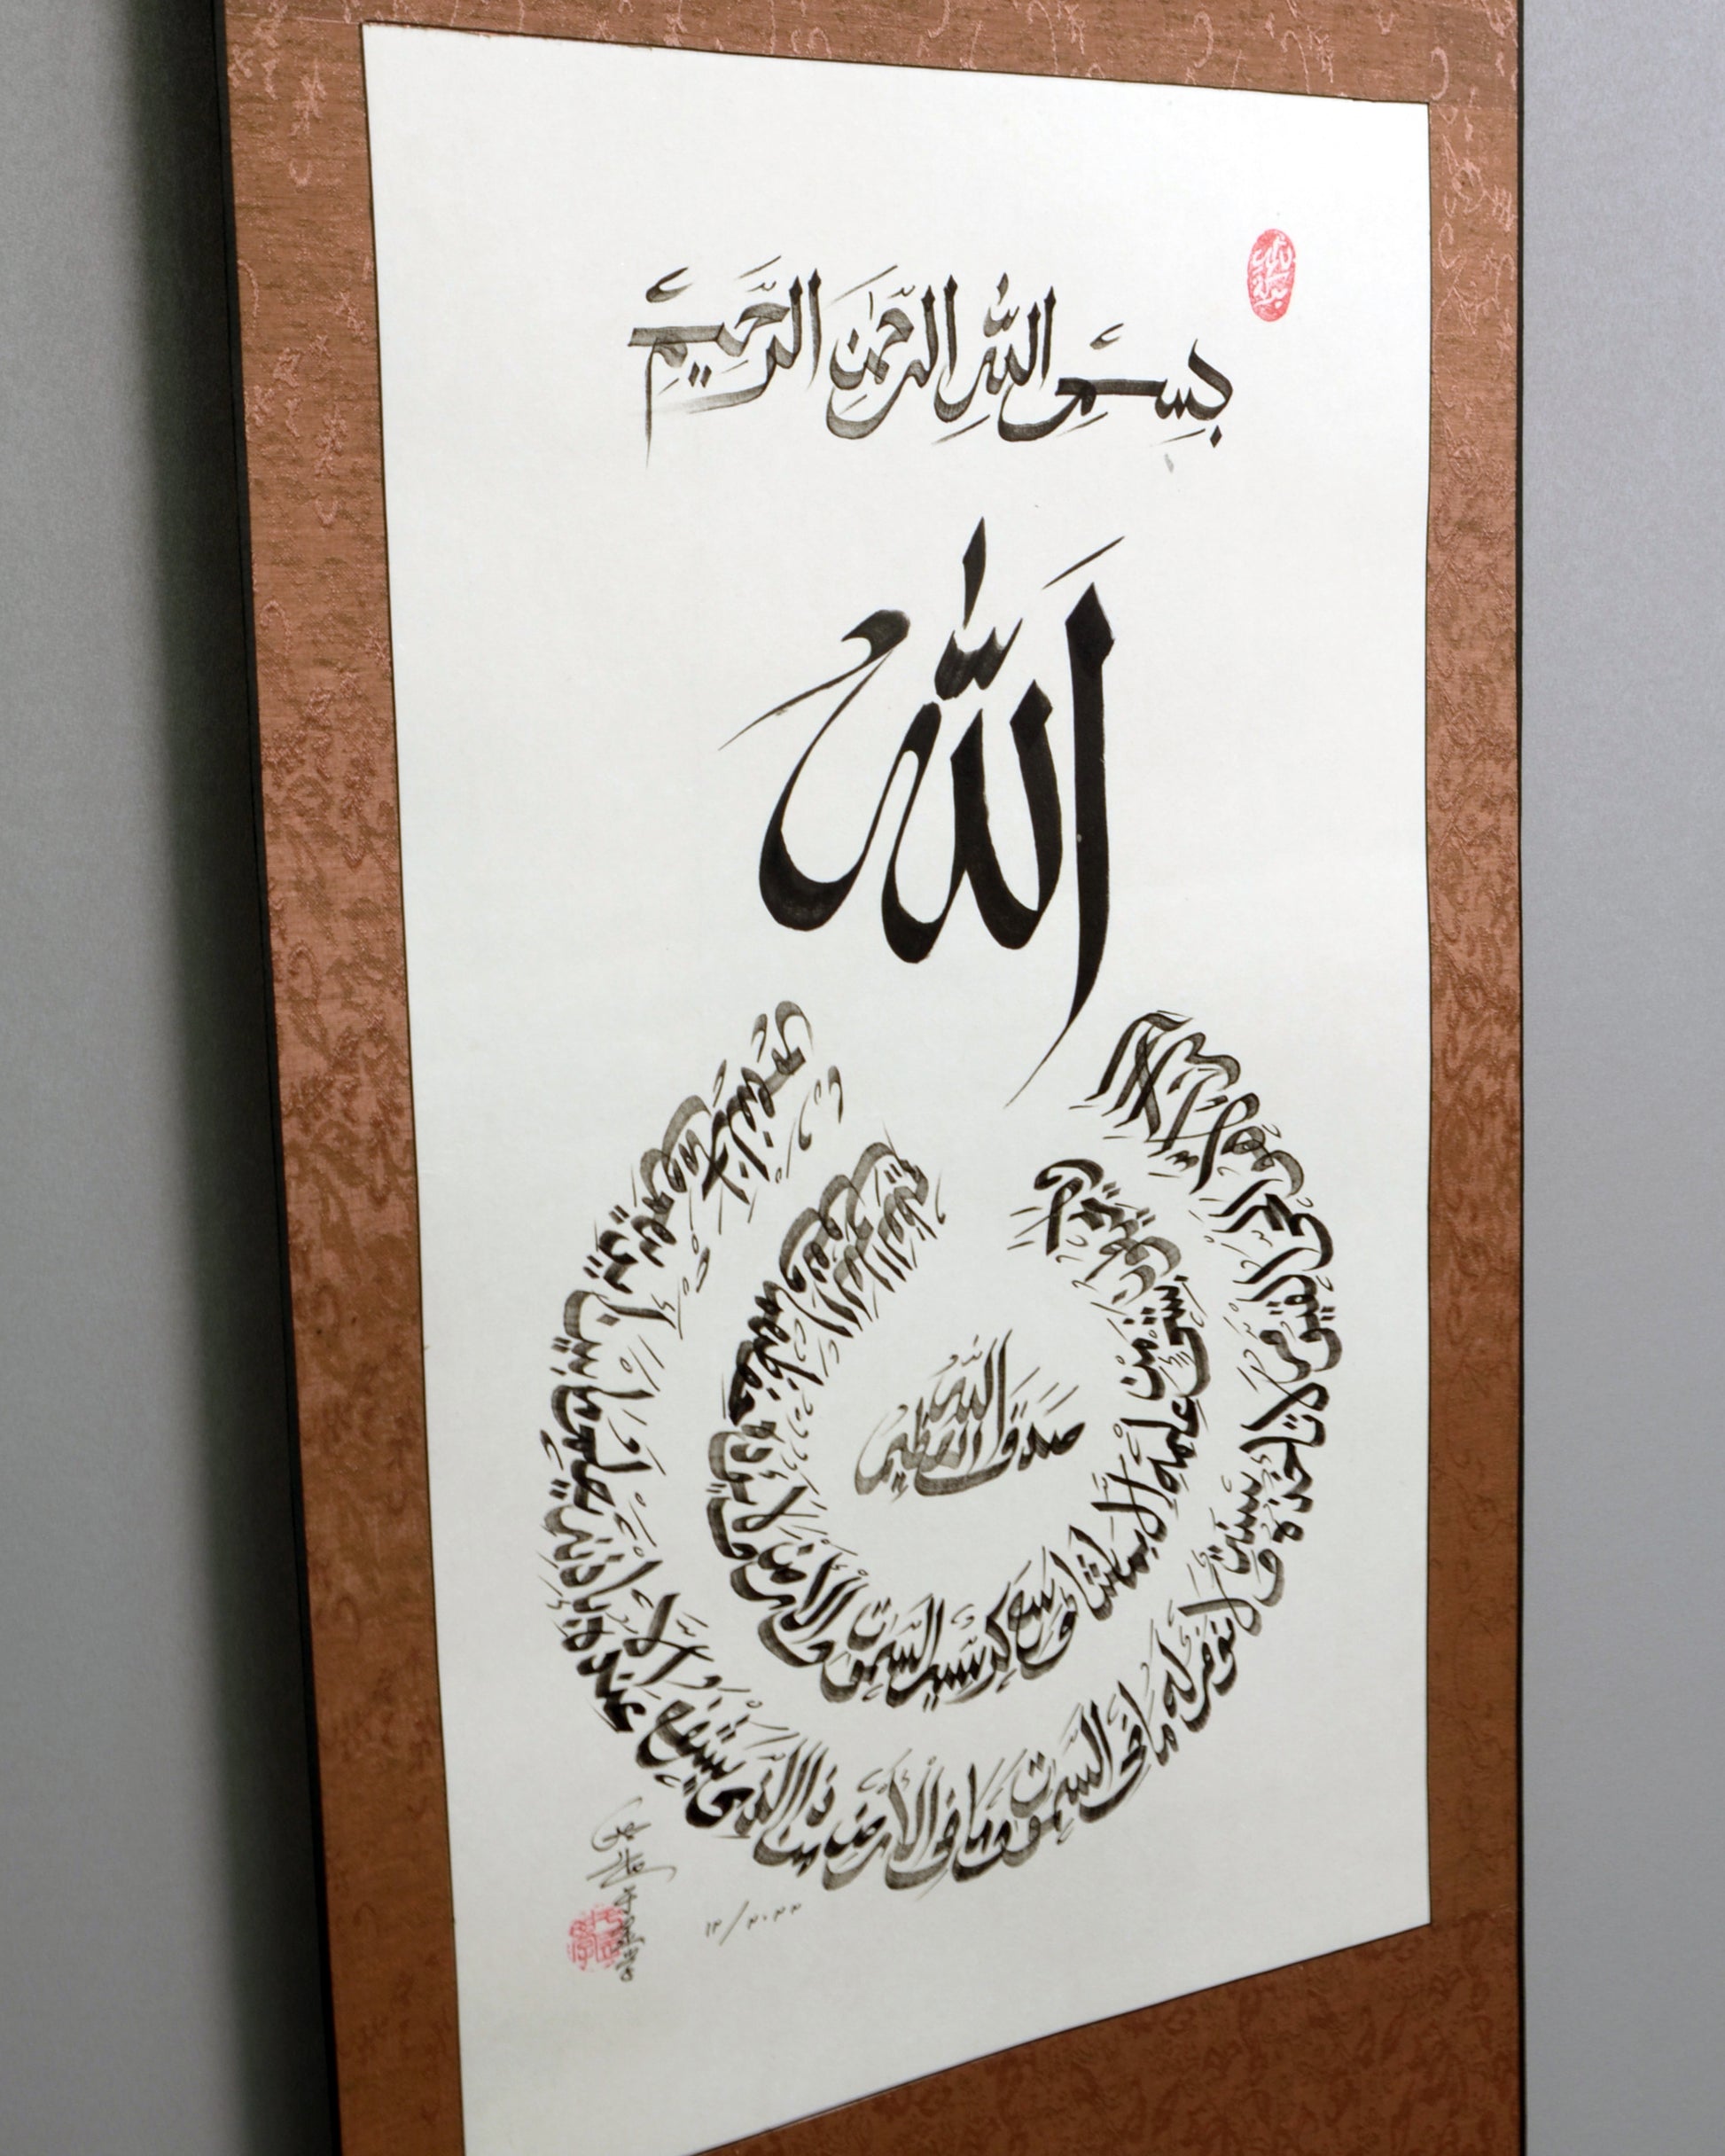 بِسْمِ اللَّهِ الرَّحْمَٰنِ الرَّحِيمِ
اللَّهُ
لا إله إلا هو الحي القيوم لا تأخذه سنة ولا نوم له ما في السموت وما في الأرض من ذا الذي يشفع عنده إلا بإذنه يعلم ما بين أيديهم وما خلفهم
ولا يحيطون بشيء من علمه إلا بما شاء وسع كرسيه السموت والأرض ولا يؤده حفظهما وهو العلي العظيم
صَدَقَ اللَّهُ الْعَظِيم
١٢/٢٠٢٢